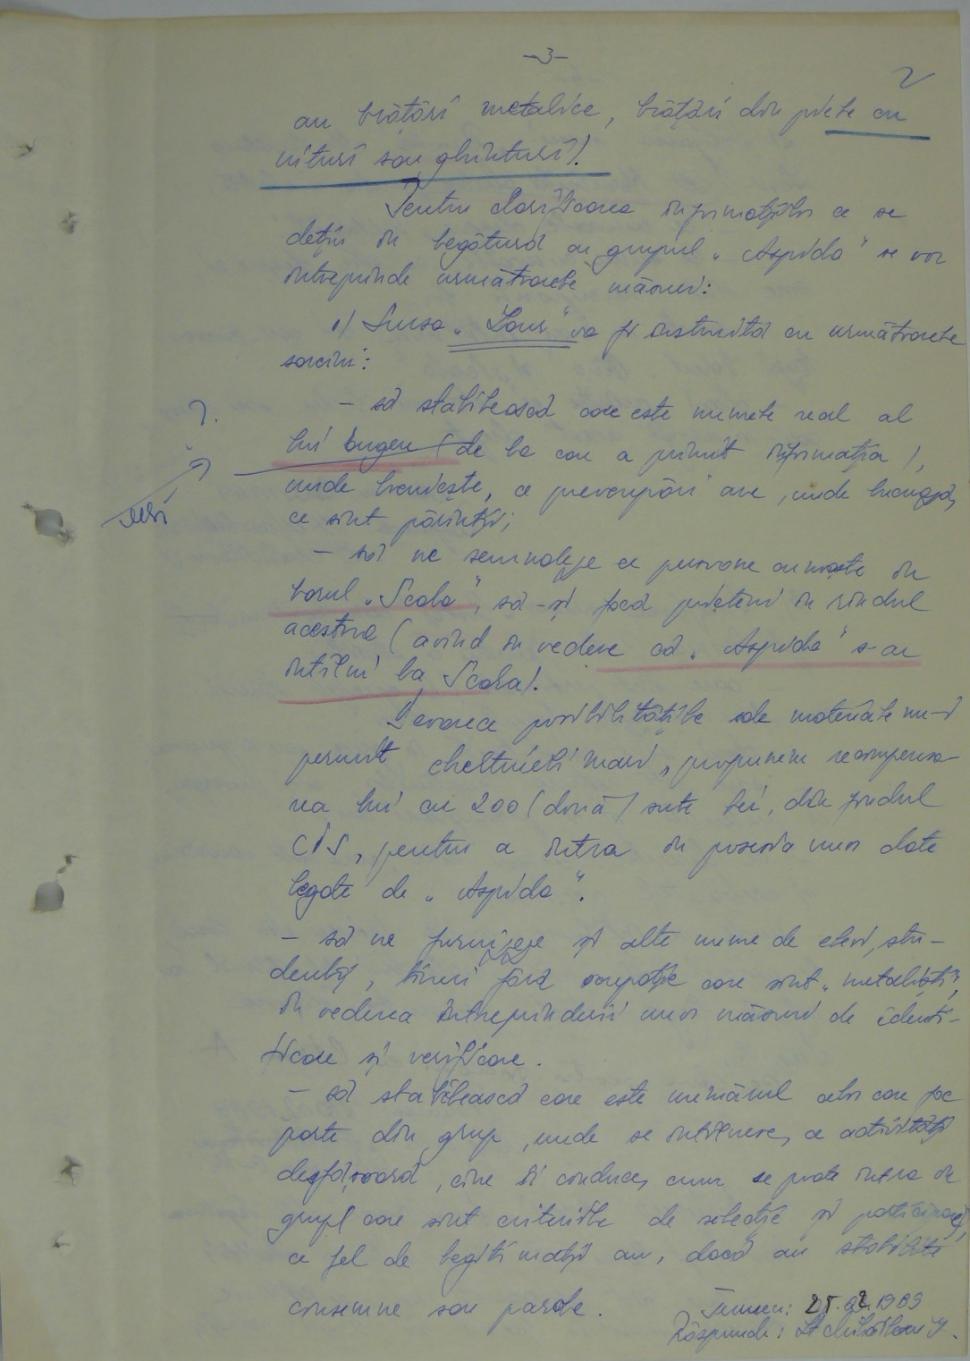 -3-
2
au brățări metalice, brățări din piele cu
nituri sau ghinturi).
Pentru clarificarea informațiilor ce se
dețin în legătură cu grupul „Aspida" se vor
întreprinde următoarele măsuri:
1) Sursa „Laur" va fi instruită cu următoarele
sarcini:
- să stabilească care este numele real al
lui Eugen (de la care a primit informația),
unde locuiește, ce preocupări are, unde lucrează,
ce sînt părinții;
- să ne semnaleze ce persoane cunoaște în
barul „Scala", să-și facă prieteni în rîndul
acestora (avînd în vedere că „Aspida" s-au
întîlnit la Scala).
Deoarece posibilitățile sale materiale nu-i
permit cheltuieli mari, propunem recompensa-
rea lui cu 200 (două) sute lei, din fondul
CIS, pentru a intra în posesia unor date
legate de „Aspida".
- să ne furnizeze și alte nume de elevi, stu-
denți, tineri fără ocupație care sînt „metaliști",
în vederea întreprinderii unor măsuri de identi-
ficare și verificare.
- să stabilească care este numărul celor care fac
parte din grup, unde se întîlnesc, ce activități
desfășoară, cine îi conduce, cum se poate intra în
grup, care sînt criteriile de selecție și participare,
ce fel de legitimații au, dacă au stabilite
consemne sau parole.
Termen: 25.02.1989
Răspunde: Lt